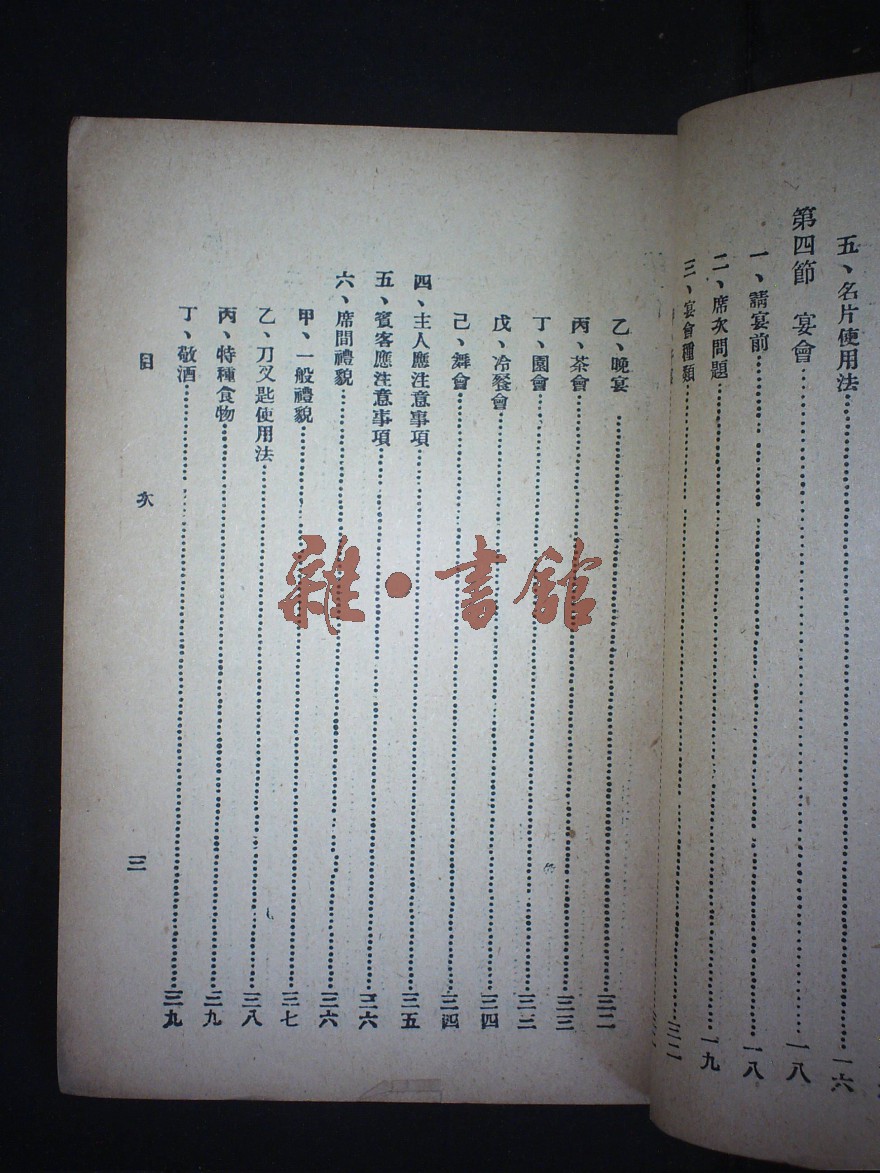 五、名片使用法……一六
第四節　宴會……一八
一、請宴前……一八
二、席次問題……一九
三、宴會種類……三二
乙、晚宴……三二
丙、茶會……三三
丁、園會……三三
戊、冷餐會……三四
己、舞會……三四
四、主人應注意事項……三五
五、賓客應注意事項……三六
六、席間禮貌……三六
甲、一般禮貌……三七
乙、刀叉匙使用法……三八
丙、特種食物……三九
丁、敬酒……三九
目　次
三
雜·書館